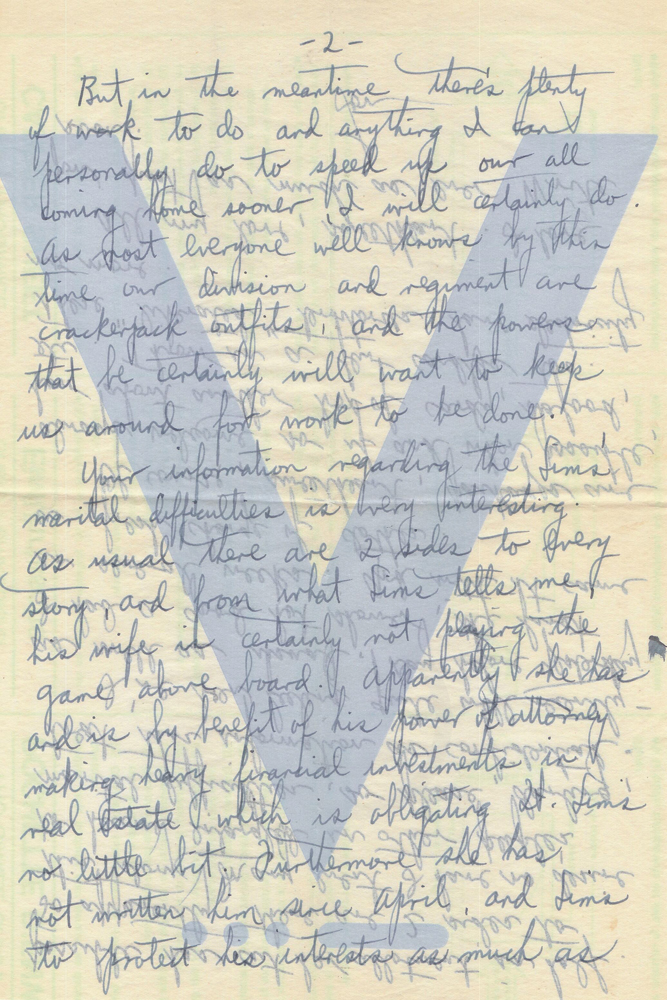 -2-
But in the meantime there's plenty
of work to do and anything I can
personally do to speed up our all
coming home sooner I will certainly do.
As most everyone well knows by this
time our division and regiment are
crackerjack outfits, and the powers
that be certainly will want to keep
us around for work to be done.
Your information regarding the Sims'
marital difficulties is very interesting.
As usual there are 2 sides to every
story, and from what Sims tells me,
his wife is certainly not playing the
game above board. Apparently she has
and is by benefit of his power of attorney
making heavy financial investments in
real estate which is obligating Lt. Sims
no little bit. Furthermore she has
not written him since April, and Sims
to protect his interests as much as